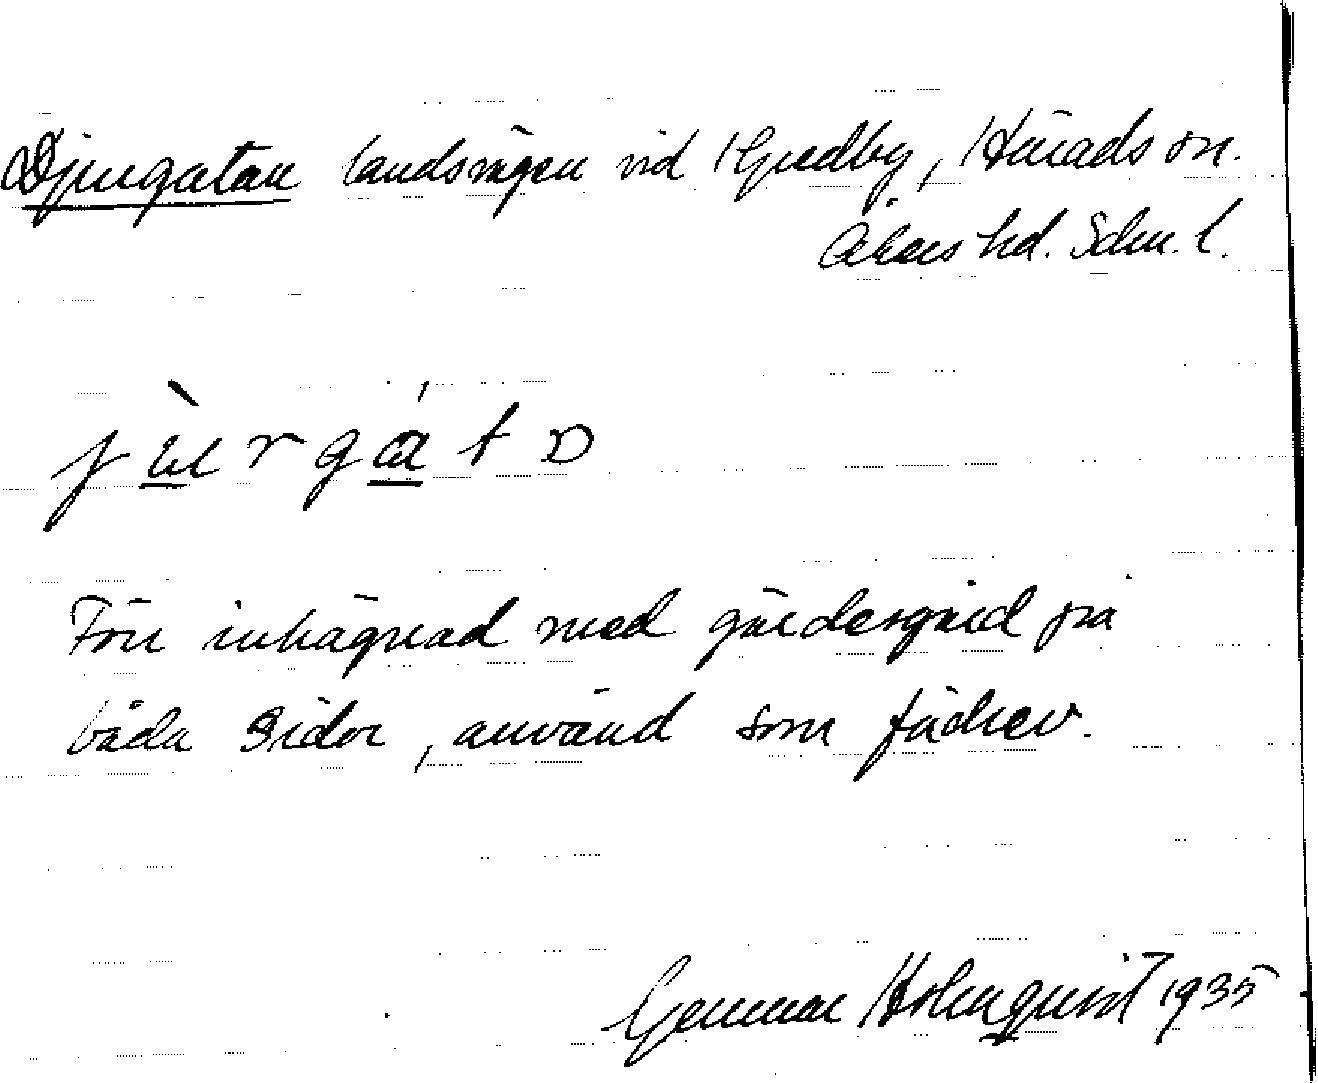 Djurgatan landsvägen vid Hjedby, Härads sn.
Åkers hd. Söm. l.
j ù r g á t ɒ
Förr inhägnad med gärdesgård på
båda sidor, använd som fädrev.
Gunnar Holmqvist 1935